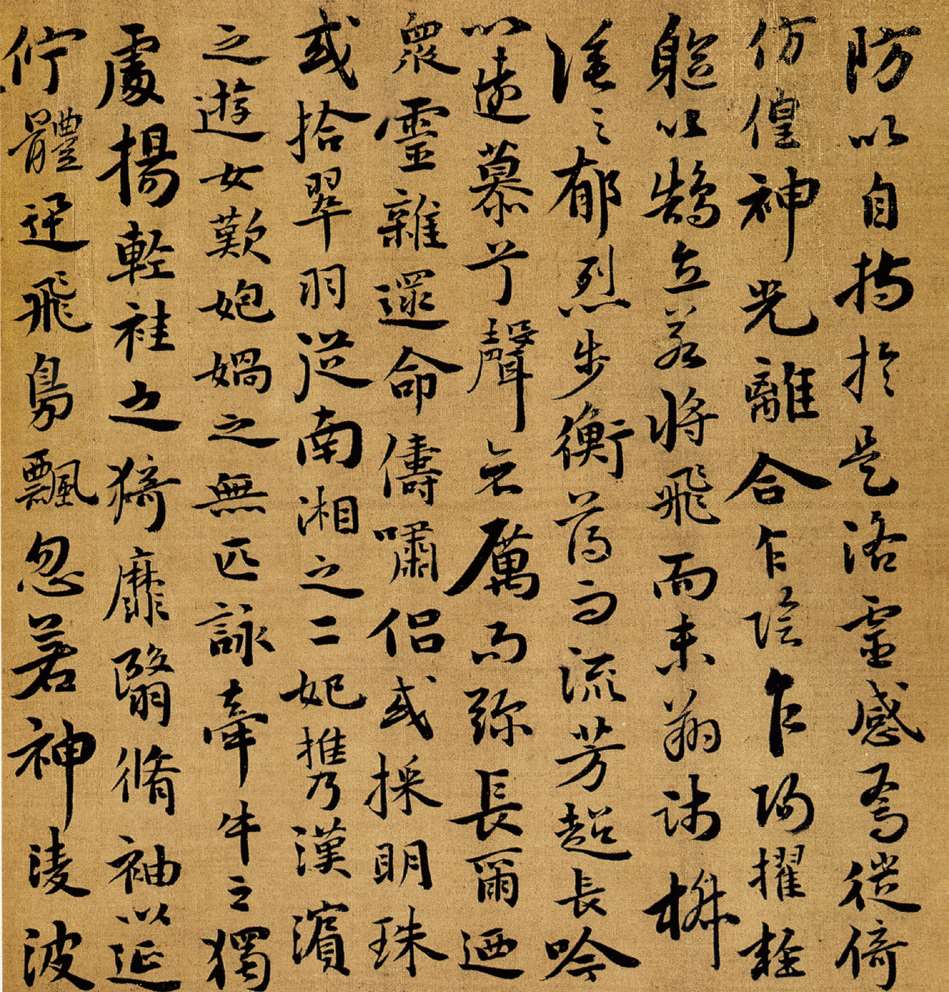 防以自持於是洛靈感焉徙倚
仿偟神光離合乍陰乍陽擢輕
軀以鵠立若將飛而未翔踐椒
塗之郁烈步衡薄而流芳超長吟
以遠慕兮聲哀厲而彌長爾迺
衆靈雜遝命儔嘯侶或採明珠
或拾翠羽從南湘之二妃携漢濱
之遊女歎媧之無匹詠牽牛之獨
處揚輕袿之猗靡翳脩袖以延
佇體迅飛鳧飄忽若神淩波